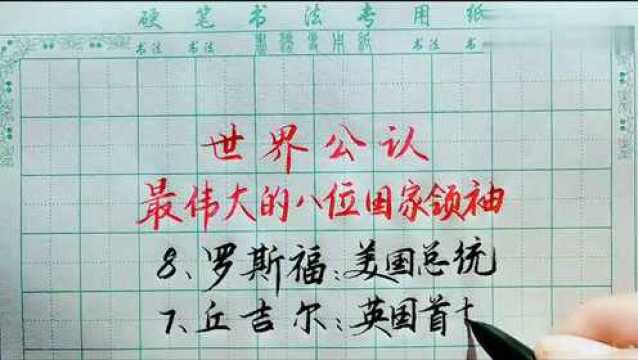 硬笔书法专用纸
书法 书法 书法 书法
世界公认
最伟大的八位国家领袖
8、罗斯福:美国总统
7、丘吉尔:英国首